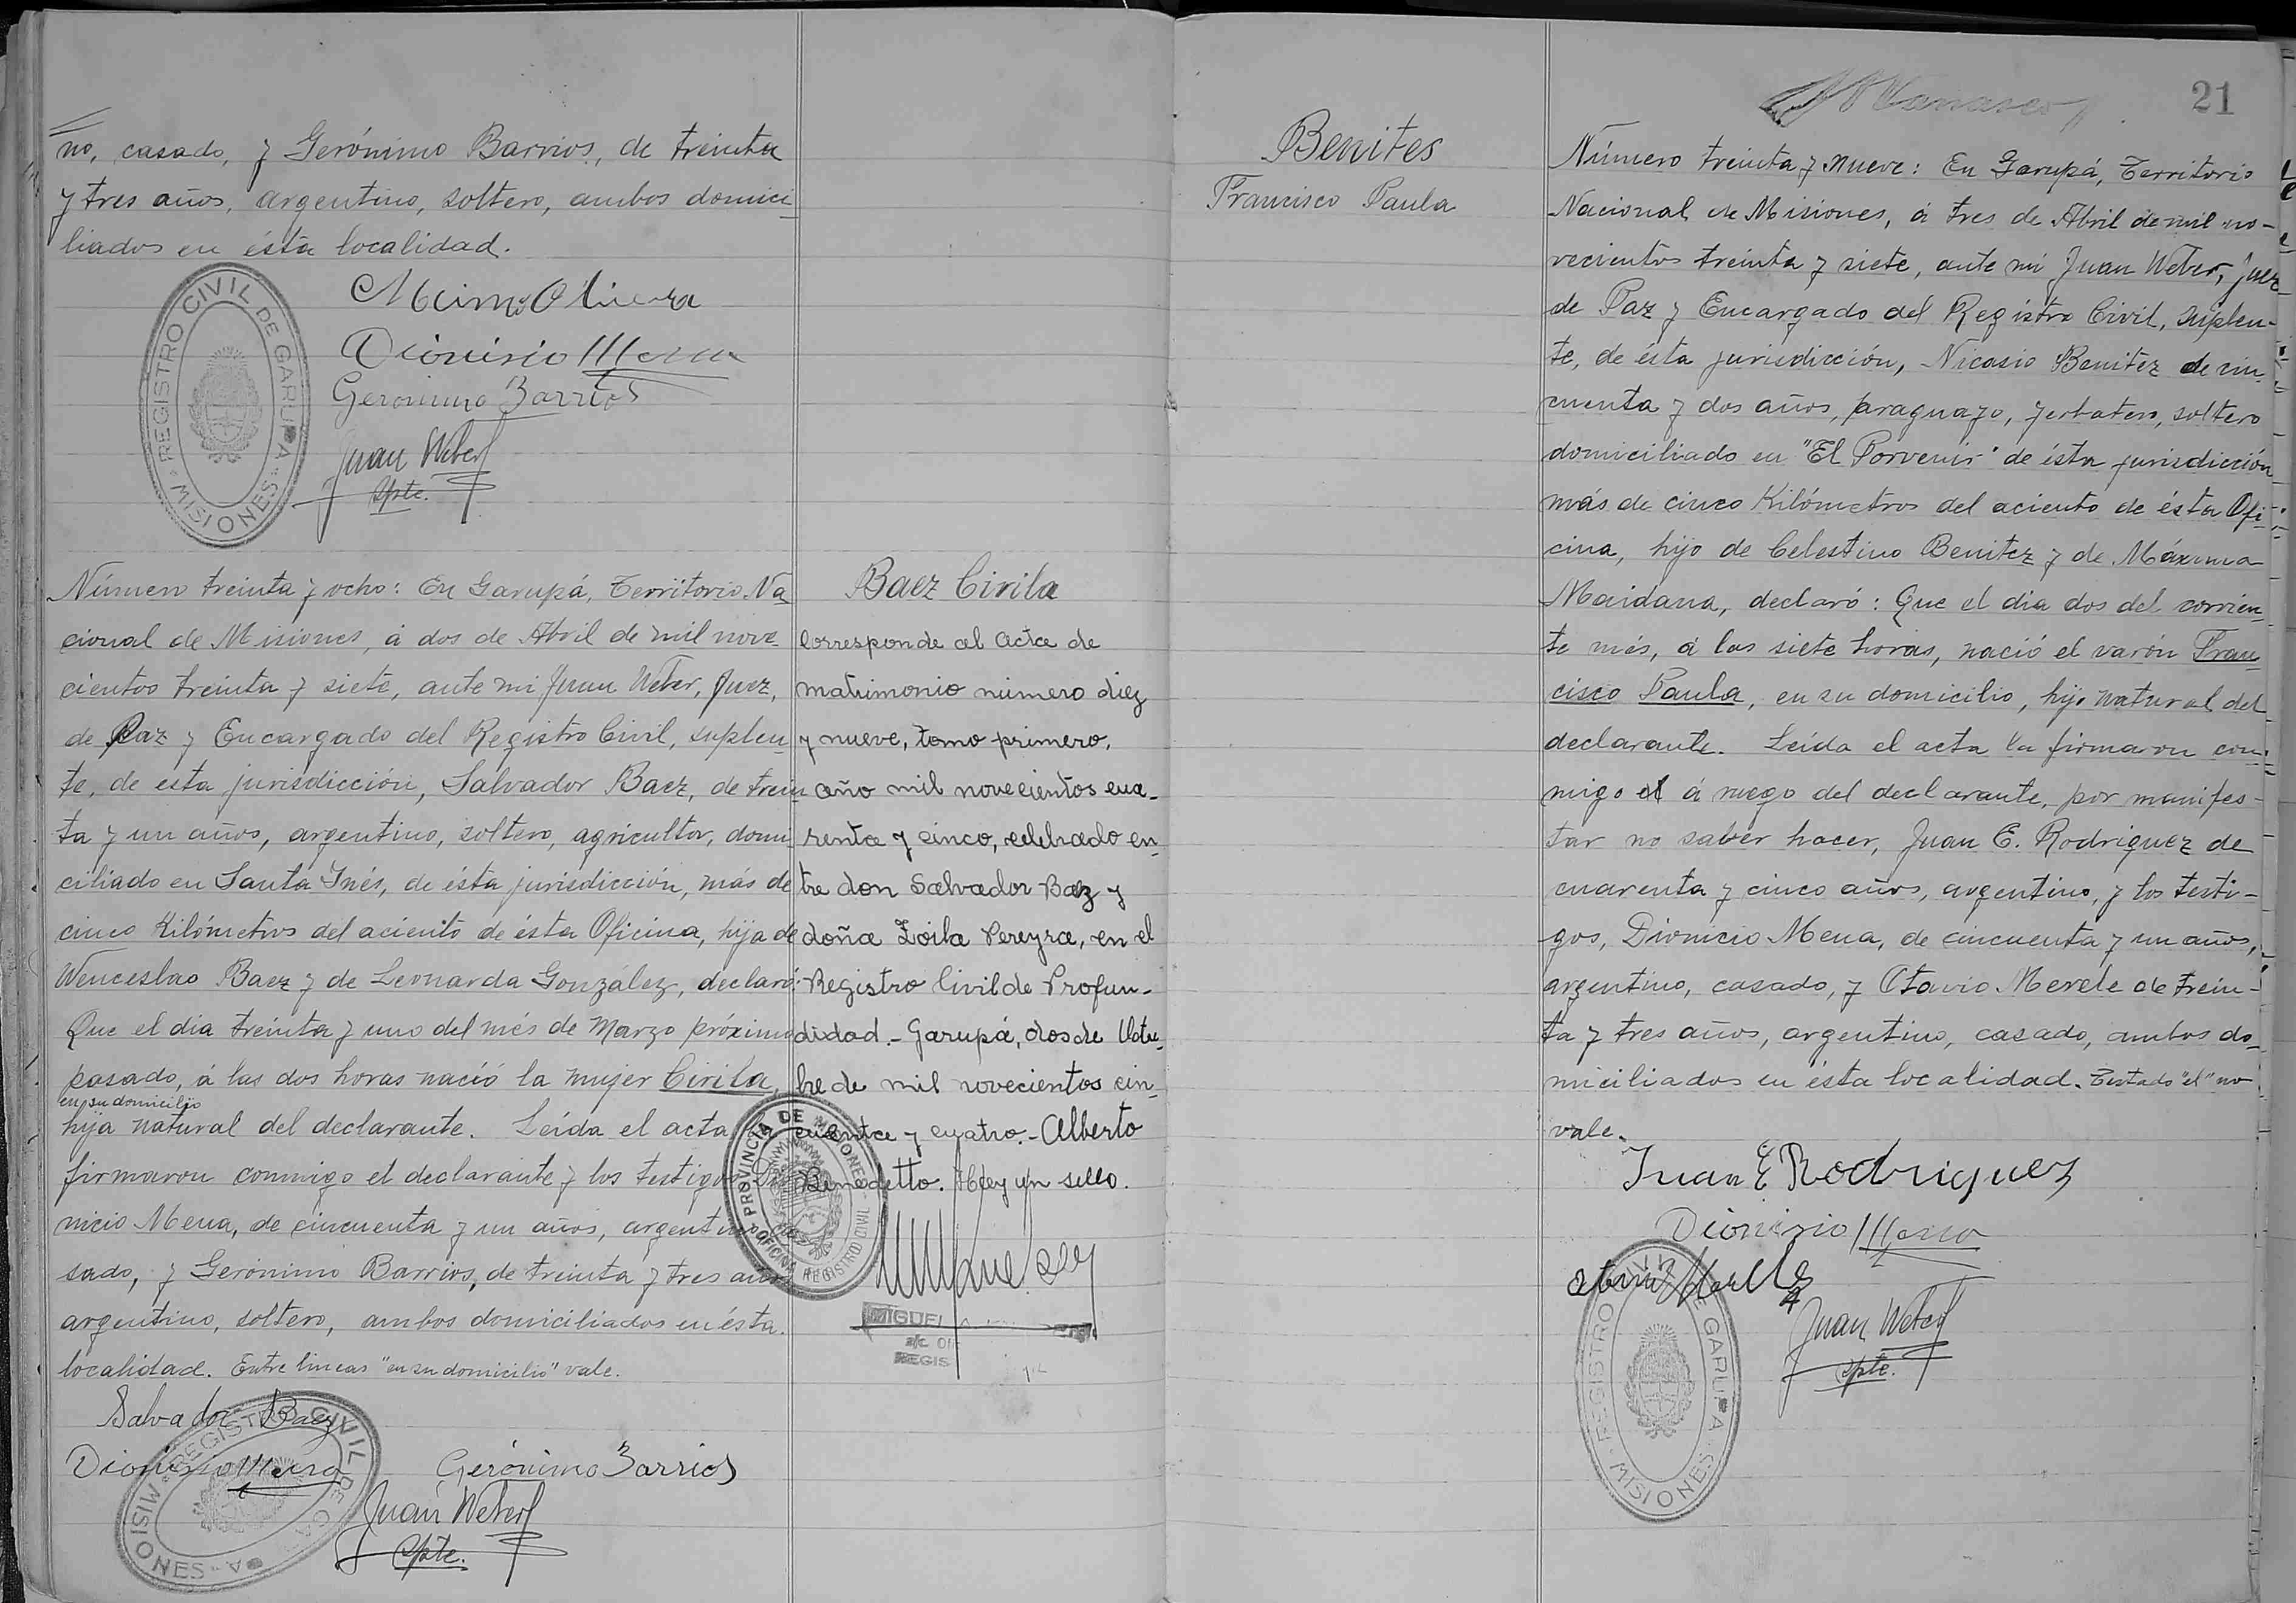 no, casado, y Gerónimo Barrios, de treinta
y tres años, argentino, soltero, ambos domici-
liados en ésta localidad.
Dionisio Mena
Geronimo Barrios
Juan Weber
Spte.
REGISTRO CIVIL DE GARUPA
MISIONES
Número treinta y ocho: En Garupá, Territorio Na-
cional de Misiones, á dos de Abril de mil nove-
cientos treinta y siete, ante mi Juan Weber, Juez,
de Paz y Encargado del Registro Civil, suplen-
te, de esta jurisdicción, Salvador Baez, de trein-
ta y un años, argentino, soltero, agricultor, domi-
ciliado en Santa Inés, de ésta jurisdicción, más de
cinco Kilómetros del aciento de ésta Oficina, hija de
Wenceslao Baez y de Leonarda González, declaró:
Que el dia treinta y uno del més de Marzo próximo
pasado, á las dos horas nació la mujer Cirila,
en su domicilio
hija natural del declarante. Leída el acta
firmaron conmigo el declarante y los testigos Dio-
nicio Mena, de cincuenta y un años, argentino, ca-
sado, y Gerónimo Barrios, de treinta y tres años
argentino, soltero, ambos domiciliados en ésta
localidad. Entre lineas "en su domicilio" vale.
Salvador Baez
Dionisio Mena
Gerónimo Barrios
Juan Weber
Spte.
REGISTRO CIVIL DE GA A
MISIONES
Baez Cirila
Corresponde al acta de
matrimonio número diez
y nueve, tomo primero,
año mil novecientos cua-
renta y cinco, celebrado en-
tre don Salvador Baez y
doña Zoila Pereyra, en el
Registro Civil de Profun-
didad.- Garupá, dos de Octu-
bre de mil novecientos cin-
cuenta y cuatro.- Alberto
Benedetto. Hay un sello.
PROVINCIA DE MISIONES
OFICINA REGISTRO CIVIL
MIGUEL
A/C OFI
REGIS
Benites
Francisco Paula
21
Número treinta y nueve: En Garupá, Territorio
Nacional de Misiones, á tres de Abril de mil no-
vecientos treinta y siete, ante mi Juan Weber, Juez
de Paz y Encargado del Registro Civil, suplen-
te, de ésta jurisdicción, Nicasio Benitez de cin-
cuenta y dos años, paraguayo, yerbatero, soltero
domiciliado en "El Porvenir" de ésta jurisdicción
más de cinco Kilómetros del aciento de ésta Ofi-
cina, hijo de Celestino Benitez y de Máxima
Maidana, declaró: Que el dia dos del corrien-
te més, á las siete horas, nació el varón Fran-
cisco Paula, en su domicilio, hijo natural del
declarante. Leída el acta la firmaron con-
migo el á ruego del declarante, por manifes-
tar no saber hacer, Juan E. Rodriguez de
cuarenta y cinco años, argentino, y los testi-
gos, Dionicio Mena, de cincuenta y un años,
argentino, casado, y Otavio Merele de trein-
ta y tres años, argentino, casado, ambos do-
miciliados en ésta localidad. Testado "el" no
vale.
Juan E Rodriguez
Dionisio Mena
Juan Weber
Spte.
REGISTRO CIVIL DE GARUPA
MISIONES